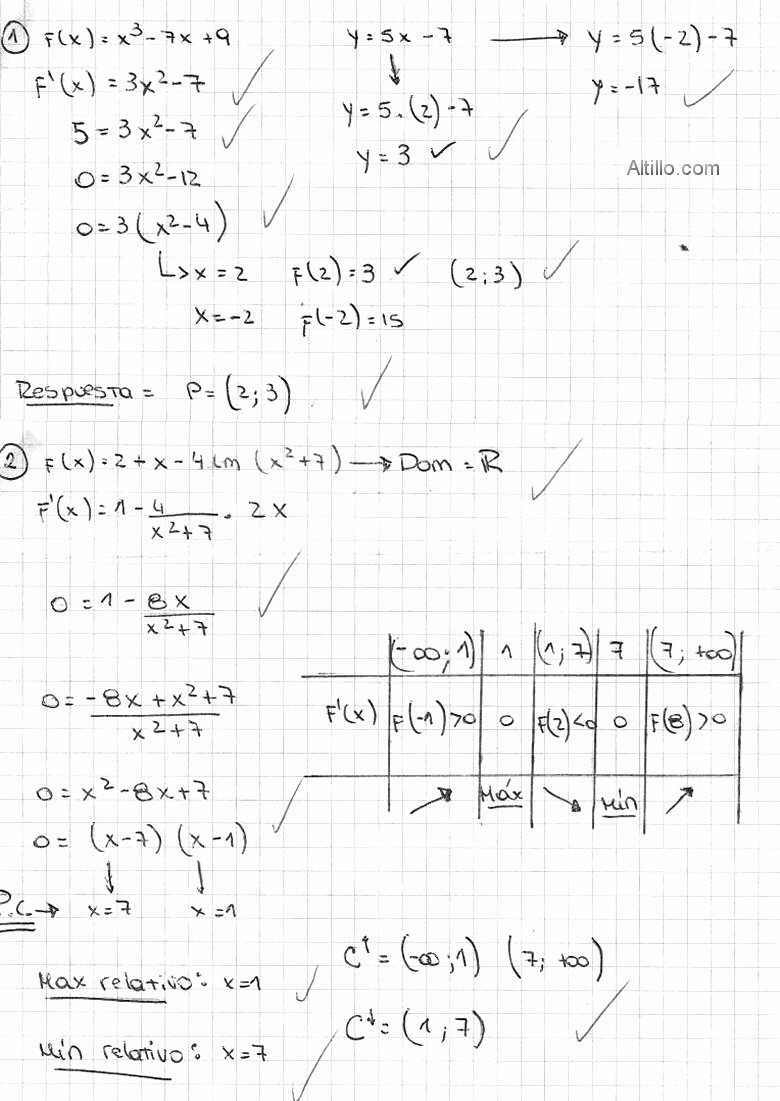 ① F(x) = x³ - 7x + 9
F'(x) = 3x² - 7
5 = 3x² - 7
0 = 3x² - 12
0 = 3(x² - 4)
↳ x = 2 F(2) = 3 ✓ (2;3)
x = -2 F(-2) = 15
y = 5x - 7 → y = 5(-2) - 7
↓
y = -17
y = 5.(2) - 7
y = 3 ✓
Altillo.com
Respuesta = P = (2;3)
② F(x) = 2 + x - 4 ln (x² + 7) → Dom = ℝ
F'(x) = 1 - 4/(x² + 7) . 2x
0 = 1 - 8x/(x² + 7)
0 = (-8x + x² + 7)/(x² + 7)
0 = x² - 8x + 7
0 = (x - 7) (x - 1)
↓ ↓
P.C. → x = 7 x = 1
(-∞;1) 1 (1;7) 7 (7;+∞)
F'(x) F(-1) > 0 0 F(2) < 0 0 F(8) > 0
↗ Máx ↘ Mín ↗
Max relativo: x = 1
Min relativo: x = 7
C↑ = (-∞;1) (7;+∞)
C↓ = (1;7)